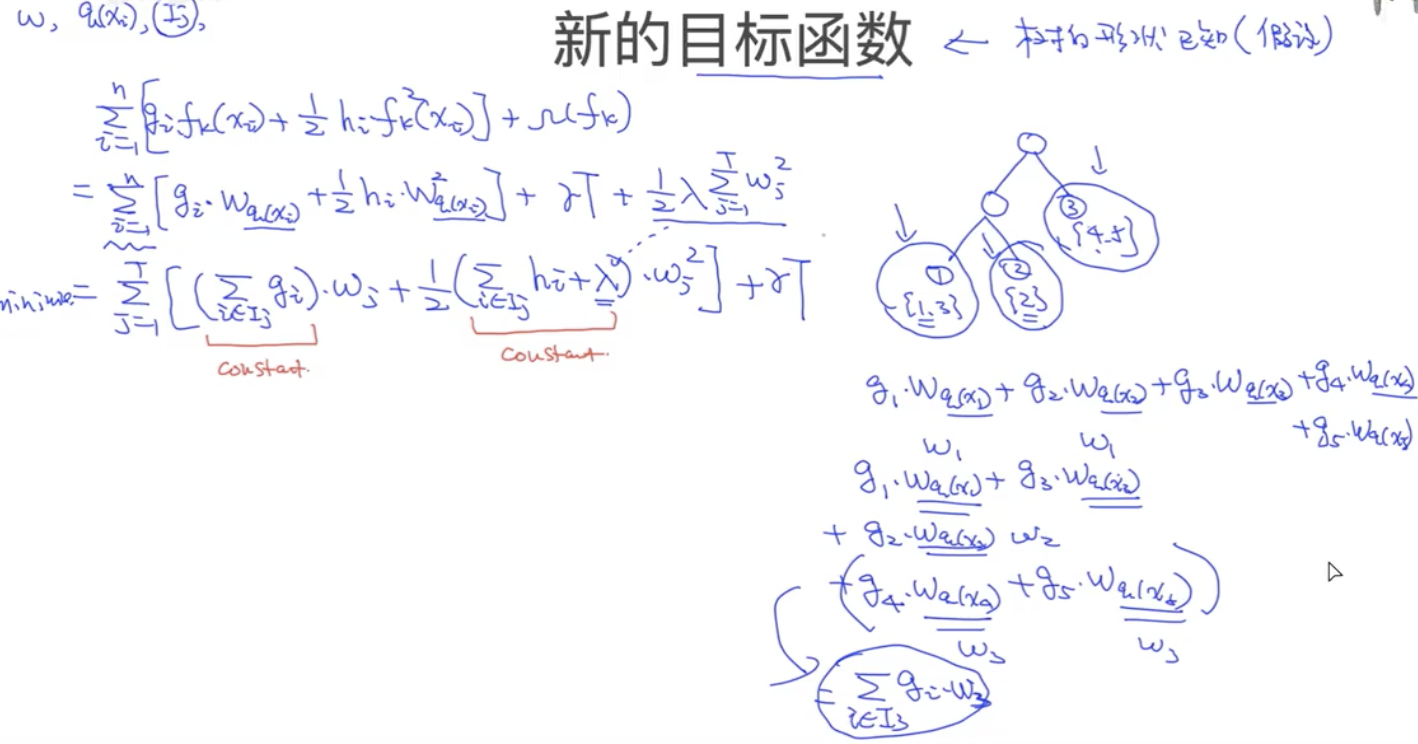 w, q(xᵢ), Iⱼ,
新的目标函数 ← 树的形状已知(假设)
∑ᵢ₌₁ⁿ [gᵢ fₖ(xᵢ) + ½ hᵢ fₖ²(xᵢ)] + Ω(fₖ)
= ∑ᵢ₌₁ⁿ [gᵢ·w_q(xᵢ) + ½ hᵢ·w²_q(xᵢ)] + γT + ½ λ ∑ⱼ₌₁ᵀ wⱼ²
= ∑ⱼ₌₁ᵀ [(∑_{i∈Iⱼ} gᵢ)·wⱼ + ½ (∑_{i∈Iⱼ} hᵢ + λ)·wⱼ²] + γT
constant. constant.
③
{4,5}
① ②
{1,3} {2}
g₁·w_q(x₁) + g₂·w_q(x₂) + g₃·w_q(x₃) + g₄·w_q(x₄)
+ g₅·w_q(x₅)
w₁ w₁
g₁·w_q(x₁) + g₃·w_q(x₃)
+ g₂·w_q(x₂) w₂
+ (g₄·w_q(x₄) + g₅·w_q(x₅))
w₃ w₃
= ∑_{i∈I₃} gᵢ·w₃